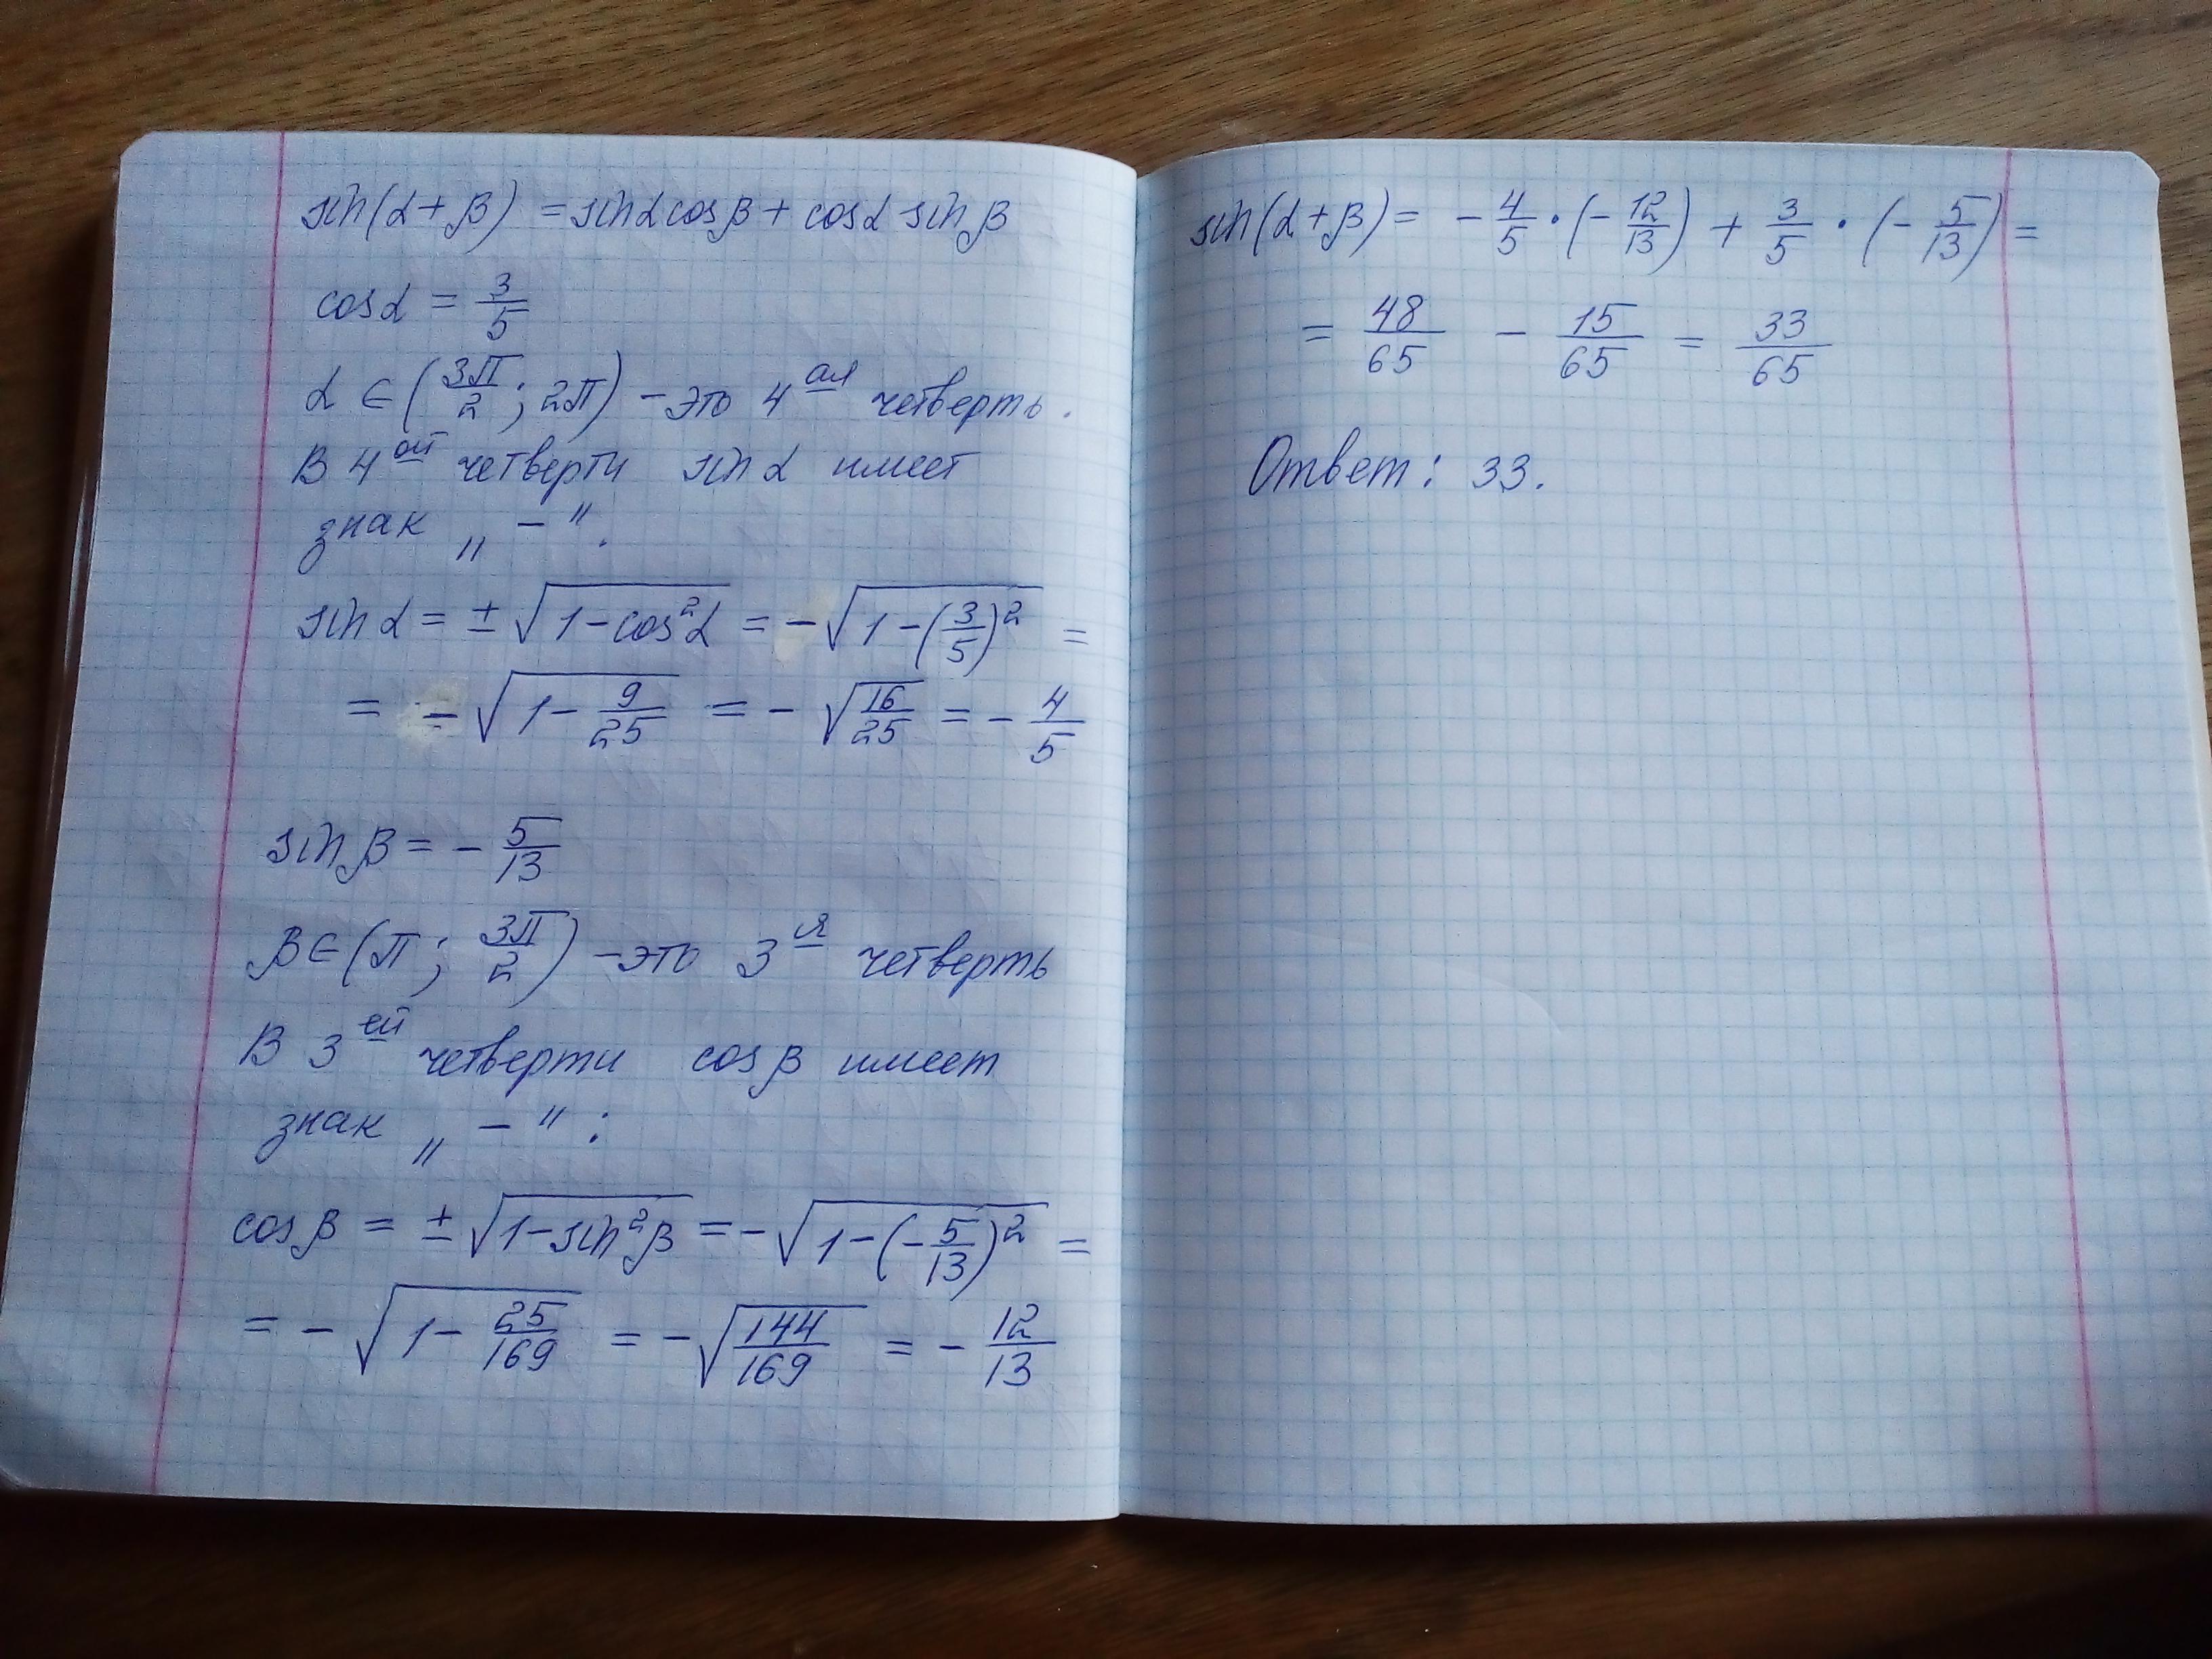 sin(α+β) = sinα cosβ + cosα sinβ
cosα = 3/5
α ∈ (3π/2; 2π) – это 4ая четверть.
В 4ой четверти sin α имеет
знак „ – ":
sin α = ± √(1-cos²α) = -√(1-(3/5)²) =
= -√(1-9/25) = -√(16/25) = -4/5
sin β = -5/13
β ∈ (π; 3π/2) – это 3я четверть
В 3ей четверти cos β имеет
знак „ – ":
cos β = ± √(1-sin²β) = -√(1-(-5/13)²) =
= -√(1-25/169) = -√(144/169) = -12/13
sin(α+β) = -4/5 · (-12/13) + 3/5 · (-5/13) =
= 48/65 - 15/65 = 33/65
Ответ: 33.